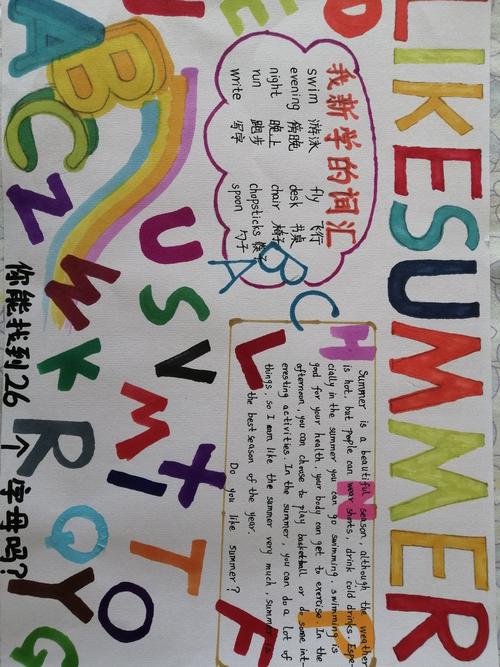 LIKE SUMMER
我新学的词汇
swim 游泳 fly 飞行
evening 傍晚 desk 书桌
night 晚上 chair 椅子
run 跑步 chopsticks 筷子
write 写字 spoon 勺子
A B C
H
L
F
Summer is a beautiful season, although the weather
is hot, but people can wear shorts, drink cold drinks. Espe-
cially in the summer you can go swimming. swimming is
good for your health, your body can get to exercise. In the
afternoon, you can choose to play basketball or do some int-
eresting activities. In the summer, you can do a lot of
things. so I am like the summer very much, summer is
the best season of the year.
Do you like summer?
D
E
U S V M I X T O
A B C Z W K R Q Y G
你能找到26个字母吗?